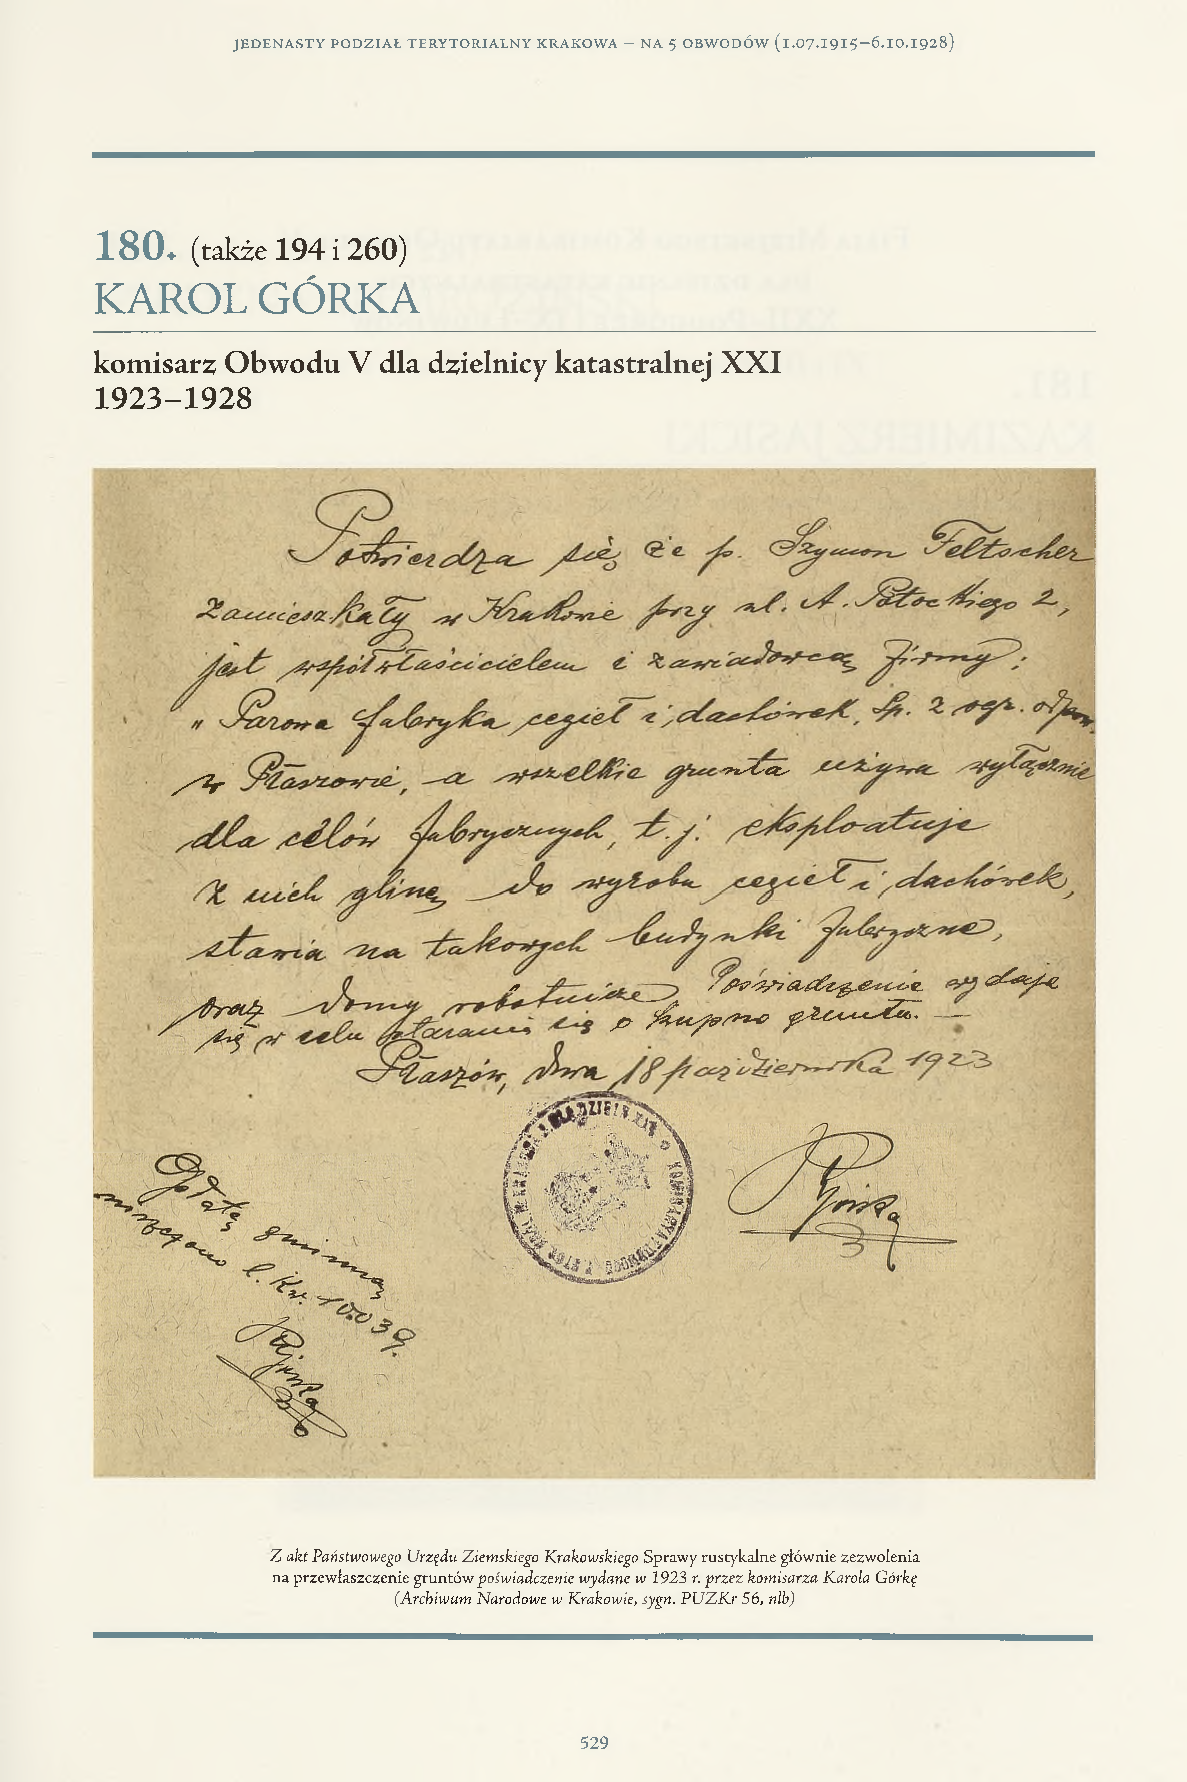 JEDENASTY PODZIAŁ TERYTORIALNY KRAKOWA – NA 5 OBWODÓW (1.07.1915–6.10.1928)
180. (także 194 i 260)
KAROL GÓRKA
komisarz Obwodu V dla dzielnicy katastralnej XXI
1923–1928
Potwierdza się że p. Szymon Feltscher
zamieszkały w Krakowie przy ul. A. Potockiego 2,
jest współwłaścicielem i zawiadowcą firmy:
„Parowa fabryka cegieł i dachówek, Sp. z ogr. odpow.
w Płaszowie, a wszelkie grunta używa wyłącznie
dla celów fabrycznych, t. j. eksploatuje
z nich glinę do wyrobu cegieł i dachówek,
stawia na takowych budynki fabryczne,
oraz domy robotnicze. Poświadczenie wydaje
się w celu starania się o kupno gruntu. —
Płaszów, dnia 18 października 1923
Opłatę gminną
l. Kw. 10.039.
Górka
Górka
Z akt Państwowego Urzędu Ziemskiego Krakowskiego Sprawy rustykalne głównie zezwolenia
na przewłaszczenie gruntów poświadczenie wydane w 1923 r. przez komisarza Karola Górkę
(Archiwum Narodowe w Krakowie, sygn. PUZKr 56, nlb)
529